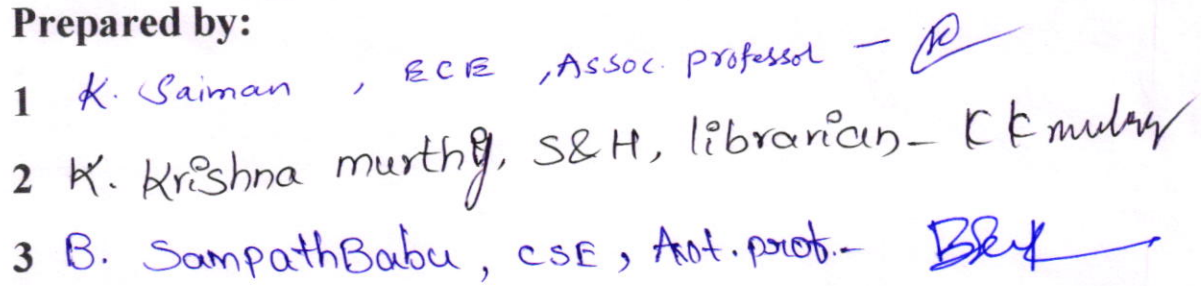 Prepared by:
1 K. Saiman, ECE, Assoc. professor -
2 K. Krishna murthy, S&H, librarian - KK murthy
3 B. SampathBabu, CSE, Asst. prof. -